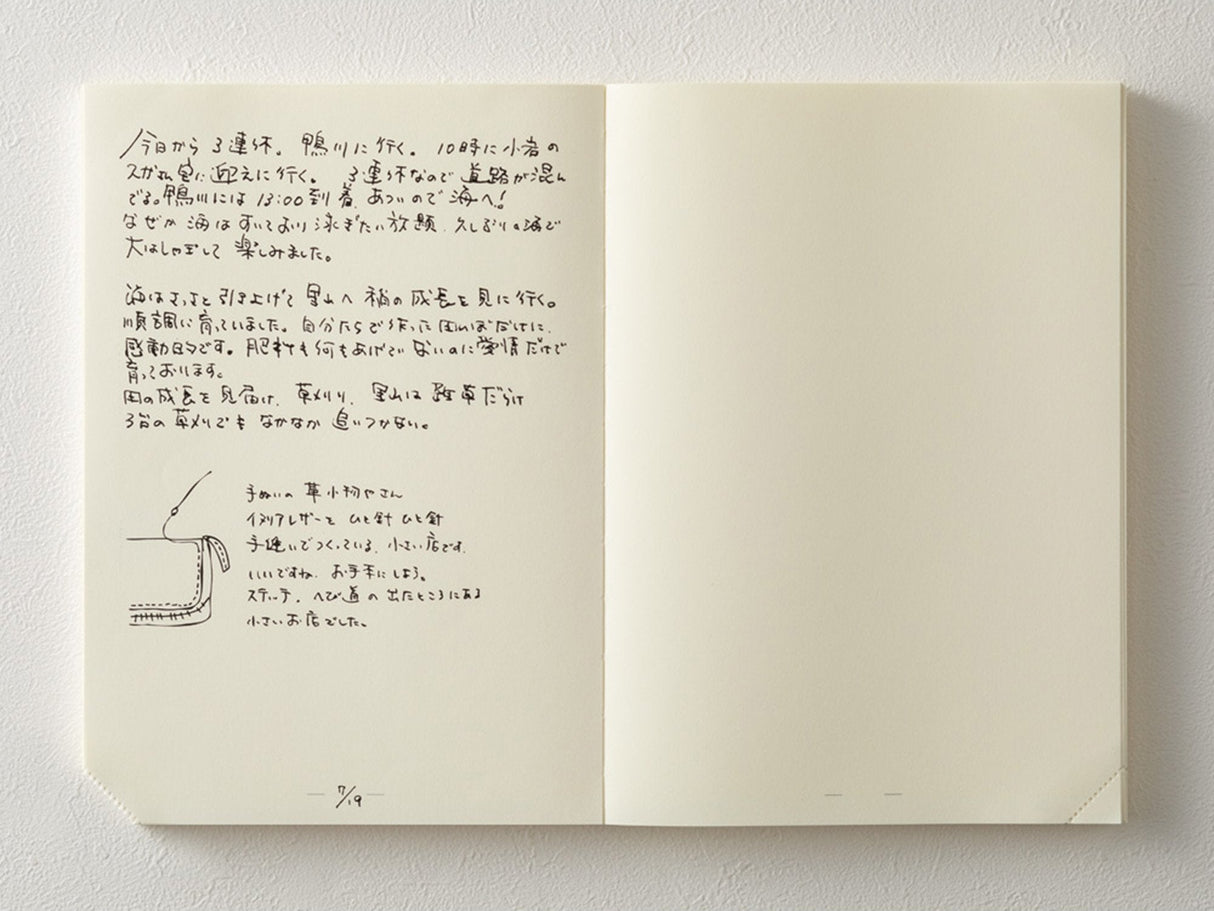 今日から 3連休。鴨川に行く。10時に小岩の
スガさん宅に迎えに行く。 3連休なので 道路が混ん
でる。鴨川には 13:00到着、あついので 海へ!
なぜか 海は すいており 泳ぎたい放題、久しぶりの海で
大はしゃぎして 楽しみました。
海はさっさと 引き上げて 里山へ 稲の成長を 見に行く。
順調に育っていました。自分たちで作った 田んぼだけに、
感動的です。肥料も何も あげていないのに 愛情だけで
育っております。
田の成長を 見届け、草刈り、里山は 雑草だらけ
3台の 草刈りでも なかなか 追いつかない。
手ぬいの 革小物やさん
イタリアレザーを ひと針 ひと針
手縫いでつくっている、小さい店です。
いいですね、お手本にしよう。
ステッチ、へび道の 出たところにある
小さいお店でした。
7/19